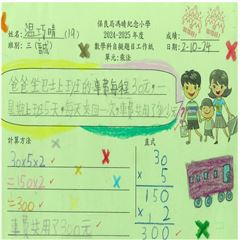 保良局馮晴紀念小學
2024-2025年度
數學科自擬題目工作紙
單元:乘法
姓名: 溫巧晴 (19)
班別: 三(誠)
成績:
日期: 2-10-24
爸爸坐巴士上班的車費每程30元,一
星期上班5天,每天來回一次,車費共用了多少元?
計算方法
30x5x2
=150x2
=300
車費共用了300元
直式
30
x 5
150
x 2
300